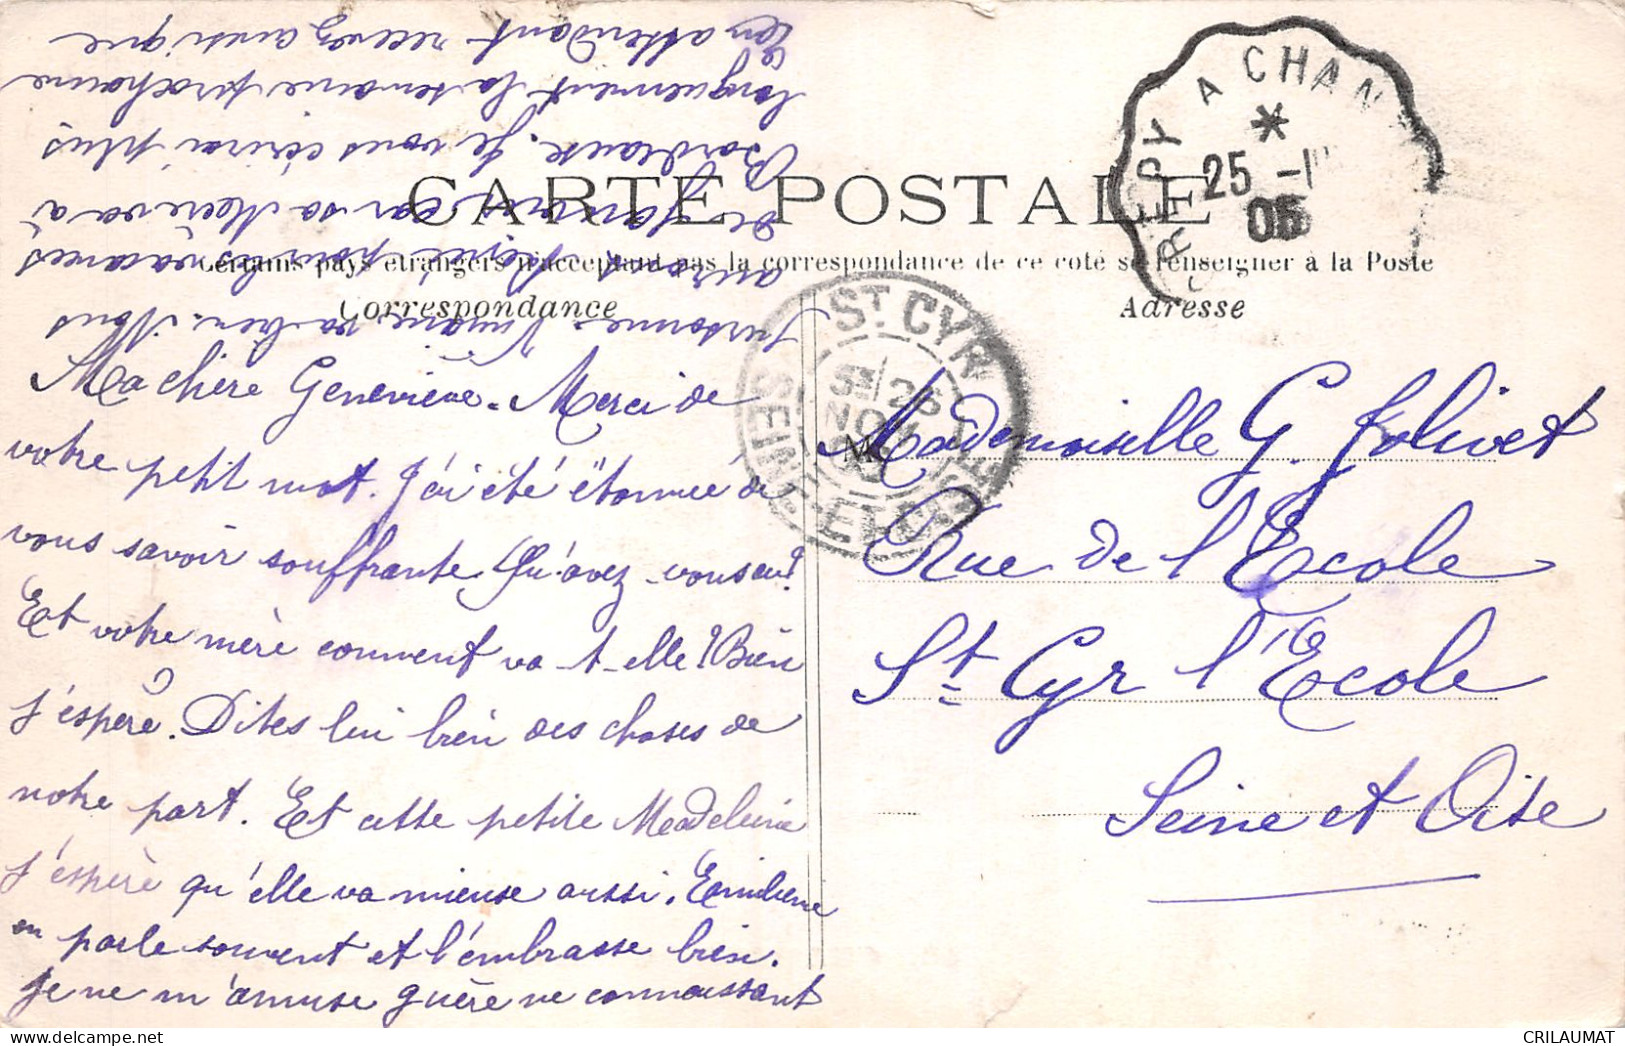 CARTE POSTALE
Certains pays étrangers n'acceptant pas la correspondance de ce coté se renseigner à la Poste
Correspondance
Adresse
Ma chère Geneviève. Merci de
votre petit mot. J'ai été étonnée de
vous savoir souffrante. Qu'avez vous eu?
Et votre mère comment va-t-elle? Bien
j'espère. Dites lui bien des choses de
notre part. Et cette petite Madeleine
j'espère qu'elle va mieuse aussi. Emilienne
en parle souvent et l'embrasse bien.
Je ne m'amuse guère ne connaissant
personne. va bien. Nous
aurons pour vacances
de car sa Mère va à
Bordeaux. Je vous écrirai plus
longuement la semaine prochaine
En attendant recevez ainsi que
CREPY A CHAN
25 -1
05
ST CYR
26
NOV
SEINE-ET-OISE
M
Mademoiselle G. Jolivet
Rue de l'Ecole
St Cyr l'Ecole
Seine et Oise
CRILAUMAT